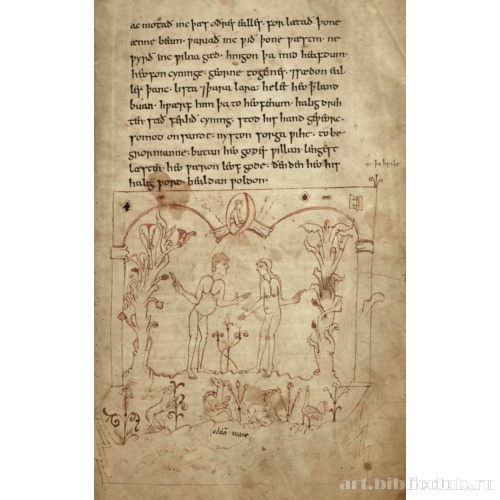 ac niotað inc þæs oðres ealles. forlætað þone
ænne beam. ƿariað inc ƿið þone ƿæstm. ne
ƿyrð inc ƿilna gæd. hnigon þa mid heafdum
heofon cyninge. georne togenes. 7sædon eal
les þanc. lista 7þara lara. he let heo ꝥ land
buan. hƿærf him þa to heofenum. halig drih
ten stið ferhð cyning. stod his hand geƿeorc.
somod onsande. nyston sorga ƿiht. to be
grornianne. butan heo godes ƿillan. lengest
læsten. heo ƿæron leof gode. ðenden heo his
halig ƿord. healdan ƿoldon.
art.biblioclub.ru